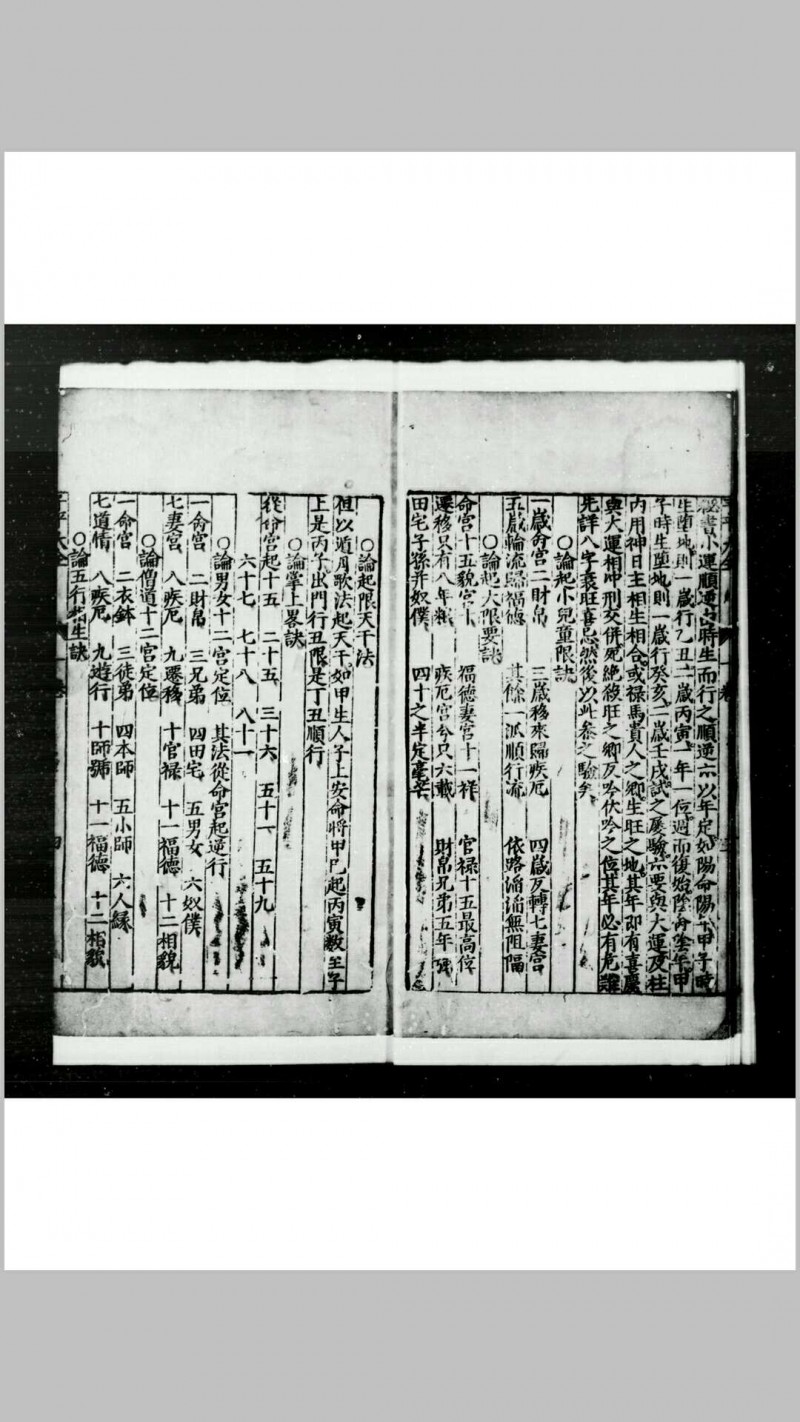 秘書小運順逆由時生而行之順逆亦以年定如陽命陽年甲子時
生墮地則一歲行乙丑二歲丙寅一年一位週而復始陰命陰年甲
子時生墮地則一歲行癸亥二歲壬戌試之屡驗亦要與大運及柱
内用神日主相生相合或禄馬貴人之鄉生旺之地其年即有喜慶
與大運相冲刑交併死絶殺旺之鄉反吟伏吟之位其年必有危難
先詳八字衰旺喜忌然後以此叅之驗矣
○論起小兒童限訣
一歲命宫二財帛 三歲移來歸疾厄 四歲反轉七妻宫
五歲輪流歸福德 其餘一派順行流 依路滔滔無阻隔
○論起大限要訣
命宫十五貌宫十 福德妻宫十一祥 官禄十五最高倖
遷移只有八年粮 疾厄宫兮只六載 財帛兄弟五年强
田宅子孫并奴僕 四十之半定毫芒
○論起限天干法
但以遁月歌法起天干如甲生人子上安命將甲巳起丙寅数至子
上是丙子出門行丑限是丁丑順行
○論掌上畧訣
從命宫起十五 二十五 三十六 五十一 五十九
六十七 七十八 八十一
○論男女十二宫定位 其法從命宫起逆行
一命宫 二財帛 三兄弟 四田宅 五男女 六奴僕
七妻宫 八疾厄 九遷移 十官禄 十一福德 十二相貌
○論僧道十二宫定位
一命宫 二衣鉢 三徒弟 四本師 五小師 六人緣
七道情 八疾厄 九遊行 十師號 十一福德 十二相貌
○論五行生訣